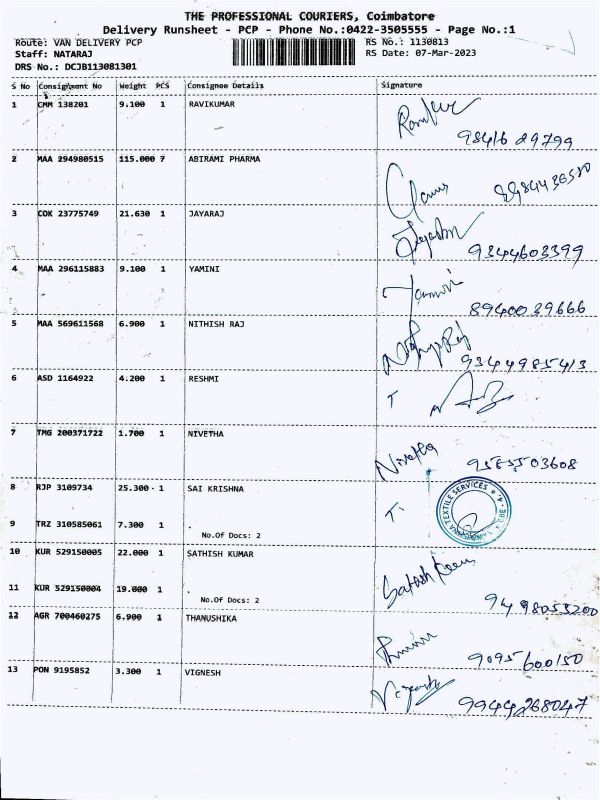 THE PROFESSIONAL COURIERS, Coimbatore
Delivery Runsheet - PCP - Phone No.:0422-3505555 - Page No.:1
Route: VAN DELIVERY PCP RS No.: 1130813
Staff: NATARAJ RS Date: 07-Mar-2023
DRS No.: DCJB113081301
S No Consignment No Weight PCS Consignee Details Signature
1 CMM 138201 9.100 1 RAVIKUMAR
98416 29799
2 MAA 294980515 115.000 7 ABIRAMI PHARMA
3 COK 23775749 21.630 1 JAYARAJ
9344603399
4 MAA 296115883 9.100 1 YAMINI
Yamini
8940039666
5 MAA 569611568 6.900 1 NITHISH RAJ
9344985413
6 ASD 1164922 4.200 1 RESHMI
7 TMG 200371722 1.700 1 NIVETHA
Nivetha
9585503608
8 RJP 3109734 25.300 1 SAI KRISHNA
TEXTILE SERVICES
9 TRZ 310585061 7.300 1 .
No.Of Docs: 2
10 KUR 529150005 22.000 1 SATHISH KUMAR
Sathish Kumar
11 KUR 529150004 19.000 1 .
No.Of Docs: 2
9498053200
12 AGR 700460275 6.900 1 THANUSHIKA
9095600150
13 PON 9195852 3.300 1 VIGNESH
9944268047